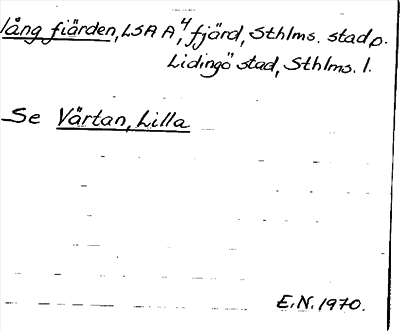 lång fiärden, LSA A, 4 fjärd, Sthlms. stad o.
Lidingö stad, Sthlms. l.
Se Värtan, Lilla
E.N. 1970.